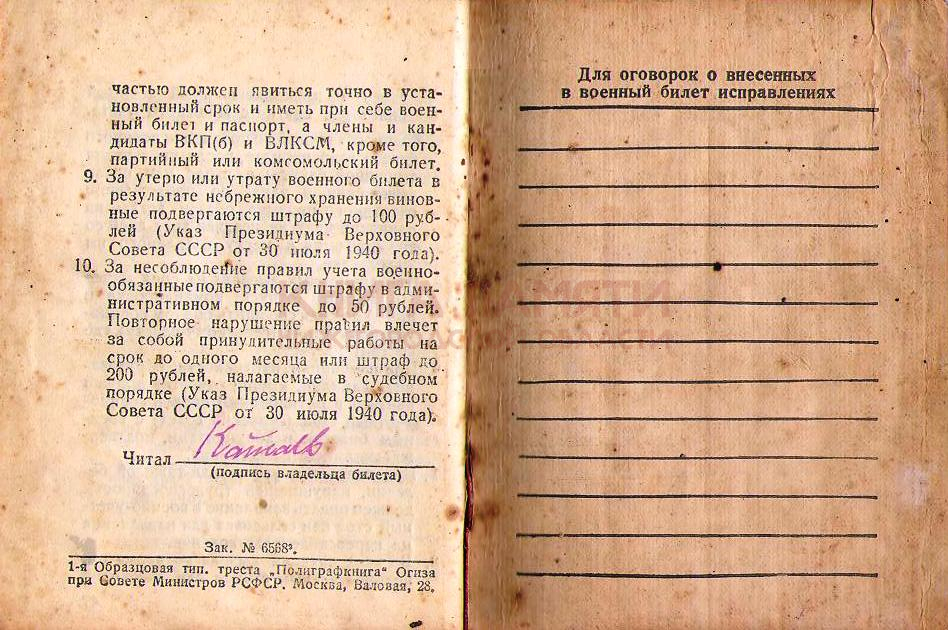 частью должен явиться точно в уста-
новленный срок и иметь при себе воен-
ный билет и паспорт, а члены и кан-
дидаты ВКП(б) и ВЛКСМ, кроме того,
партийный или комсомольский билет.
9. За утерю или утрату военного билета в
результате небрежного хранения винов-
ные подвергаются штрафу до 100 руб-
лей (Указ Президиума Верховного
Совета СССР от 30 июля 1940 года).
10. За несоблюдение правил учета военно-
обязанные подвергаются штрафу в адми-
нистративном порядке до 50 рублей.
Повторное нарушение правил влечет
за собой принудительные работы на
срок до одного месяца или штраф до
200 рублей, налагаемые в судебном
порядке (Указ Президиума Верховного
Совета СССР от 30 июля 1940 года).
Читал
(подпись владельца билета)
Зак. № 6568³.
1-я Образцовая тип. треста „Полиграфкнига" Огиза
при Совете Министров РСФСР. Москва, Валовая, 28.
Для оговорок о внесенных
в военный билет исправлениях